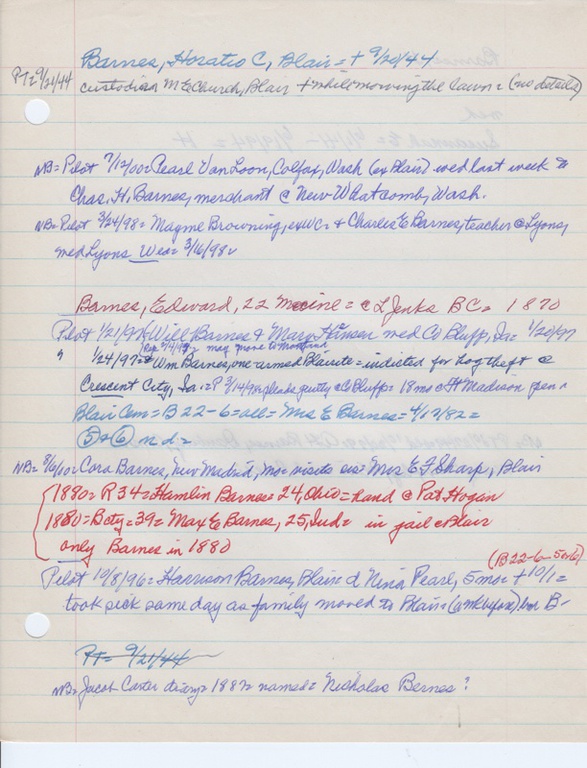 Barnes, Horatio C, Blair = + 9/20/44
PT = 9/21/44
custodian M E Church, Blair + while mowing the lawn = (no details)
NB = Pilot 7/12/00 = Pearl Van Loon, Colfax, Wash (ex Blair) wed last week to
Chas. H. Barnes, merchant @ New Whatcomb, Wash.
NB = Pilot 3/24/98 = Magme Browning, ex WC & Charles E Barnes, teacher @ Lyons,
med Lyons Wed = 3/16/98
Barnes, Edward, 22 Maine = @ L Jenks BC = 1870
Pilot 1/21/97 = Will Barnes & Mary Hansen med Co Bluff, Ia = 1/20/97
may move to
" 1/24/97 = Wm Barnes, one-armed Blairite = indicted for hog theft @
Crescent City, Ia. = P 3/14/98 pleads guilty @ C Bluff = 18 mo @ Ft Madison pen
Blair Cem = B 22-6 = all = Mrs E Barnes = 4/12/82 =
5 & 6 nd =
NB = 8/6/10 = Cora Barnes, New Madrid, Mo = visits Mrs E F Sharp, Blair
1880 = R 34 = Hamlin Barnes = 24, Ohio = hand @ Pat Hogan
1880 = Bcty = 39 = Max E Barnes, 25, Ind = in jail @ Blair
only Barnes in 1880
(B 22-6-5 or 6)
Pilot 10/8/96 = Harrison Barnes, Blair = d Nina Pearl, 5 mo = + 10/1 =
took sick same day as family moved to Blair = (a wk before) bur B-
PT = 9/21/44
NB = Jacob Carter diary = 1882 named = Nicholas Bernes?